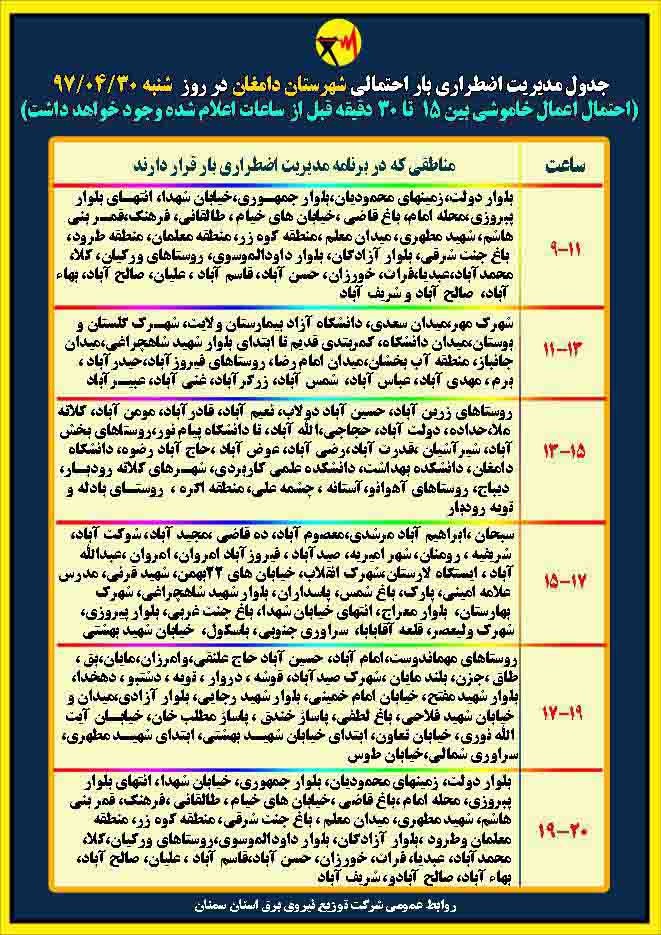 جدول مدیریت اضطراری بار احتمالی شهرستان دامغان در روز شنبه ۹۷/۰۴/۳۰
(احتمال اعمال خاموشی بین ۱۵ تا ۳۰ دقیقه قبل از ساعات اعلام شده وجود خواهد داشت)
ساعت
مناطقی که در برنامه مدیریت اضطراری بار قرار دارند
۹-۱۱
بلوار دولت، زمینهای محمودیان،بلوار جمهوری،خیابان شهدا، انتهای بلوار
پیروزی،محله امام، باغ قاضی ،خیابان های خیام ، طالقانی، فرهنگ،قمر بنی
هاشم، شهید مطهری، میدان معلم ،منطقه کوه زر، منطقه معلمان، منطقه طرود،
باغ جنت شرقی، بلوار آزادگان، بلوار داودالموسوی، روستاهای ورکیان، کلا،
محمدآباد،عبدیا،فرات، خورزان، حسن آباد، قاسم آباد ، علیان، صالح آباد، بهاء
آباد، صالح آباد و شریف آباد
۱۱-۱۳
شهرک مهر،میدان سعدی، دانشگاه آزاد بیمارستان ولایت، شهرک گلستان و
بوستان،میدان دانشگاه، کمربندی قدیم تا ابتدای بلوار شهید شاهچراغی،میدان
جانباز، منطقه آب بخشان،میدان امام رضا، روستاهای فیروزآباد،حیدرآباد ،
برم ، مهدی آباد، عباس آباد، شمس آباد، زرگرآباد، غنی آباد، عبیرآباد
۱۳-۱۵
روستاهای زرین آباد، حسین آباد دولاب، نعیم آباد، قادرآباد، مومن آباد، کلاته
ملا،حداده، دولت آباد، حجاجی،الله آباد، تا دانشگاه پیام نور،روستاهای بخش
آباد، شیرآشیان ،قدرت آباد،رضی آباد، عوض آباد ،حاج آباد رضوه، دانشگاه
دامغان، دانشکده بهداشت، دانشکده علمی کاربردی، شهرهای کلاته رودبار،
دیباج، روستاهای آهوانو،آستانه ، چشمه علی،منطقه اکره ، روستای بادله و
تویه رودبار
۱۵-۱۷
سبحان ،ابراهیم آباد مرشدی،معصوم آباد، ده قاضی ،مجید آباد، شوکت آباد،
شریفیه ، رومنان، شهر امیریه، صیدآباد ، فیروزآباد امروان، امروان ،عبدالله
آباد ، ایستگاه لارستان،شهرک انقلاب، خیابان های ۲۲بهمن، شهید قرنی، مدرس
علامه امینی، پارک، باغ شمس، پاسداران، بلوار شهید شاهچراغی، شهرک
بهارستان، بلوار معراج، انتهای خیابان شهدا، باغ جنت غربی، بلوار پیروزی،
شهرک ولیعصر، قلعه آقابابا، سراوری جنوبی، باسکول، خیابان شهید بهشتی
۱۷-۱۹
روستاهای مهماندوست،امام آباد، حسین آباد حاج علنقی،وامرزان،مایان،بق ،
طاق ،جزن، بلند مایان ،شهرک صیدآباد، قوشه ، دروار ، تویه ، دشتبو ، دهخدا،
بلوار شهید مفتح، خیابان امام خمینی، بلوار شهید رجایی، بلوار آزادی،میدان و
خیابان شهید فلاحی، باغ لطفی، پاساژ خندق ، پاساژ مطلب خان، خیابان آیت
الله نوری، خیابان تعاون، ابتدای خیابان شهید بهشتی، ابتدای شهید مطهری،
سراوری شمالی،خیابان طوس
۱۹-۲۰
بلوار دولت، زمینهای محمودیان، بلوار جمهوری، خیابان شهدا، انتهای بلوار
پیروزی، محله امام ،باغ قاضی ،خیابان های خیام ، طالقانی ،فرهنگ، قمر بنی
هاشم، شهید مطهری، میدان معلم ، باغ جنت شرقی، منطقه کوه زر، منطقه
معلمان وطرود ،بلوار آزادگان، بلوار داودالموسوی،روستاهای ورکیان،کلا،
محمدآباد، عبدیا، فرات، خورزان، حسن آباد،قاسم آباد ، علیان، صالح آباد،
بهاء آباد، صالح آبادو، شریف آباد
روابط عمومی شرکت توزیع نیروی برق استان سمنان